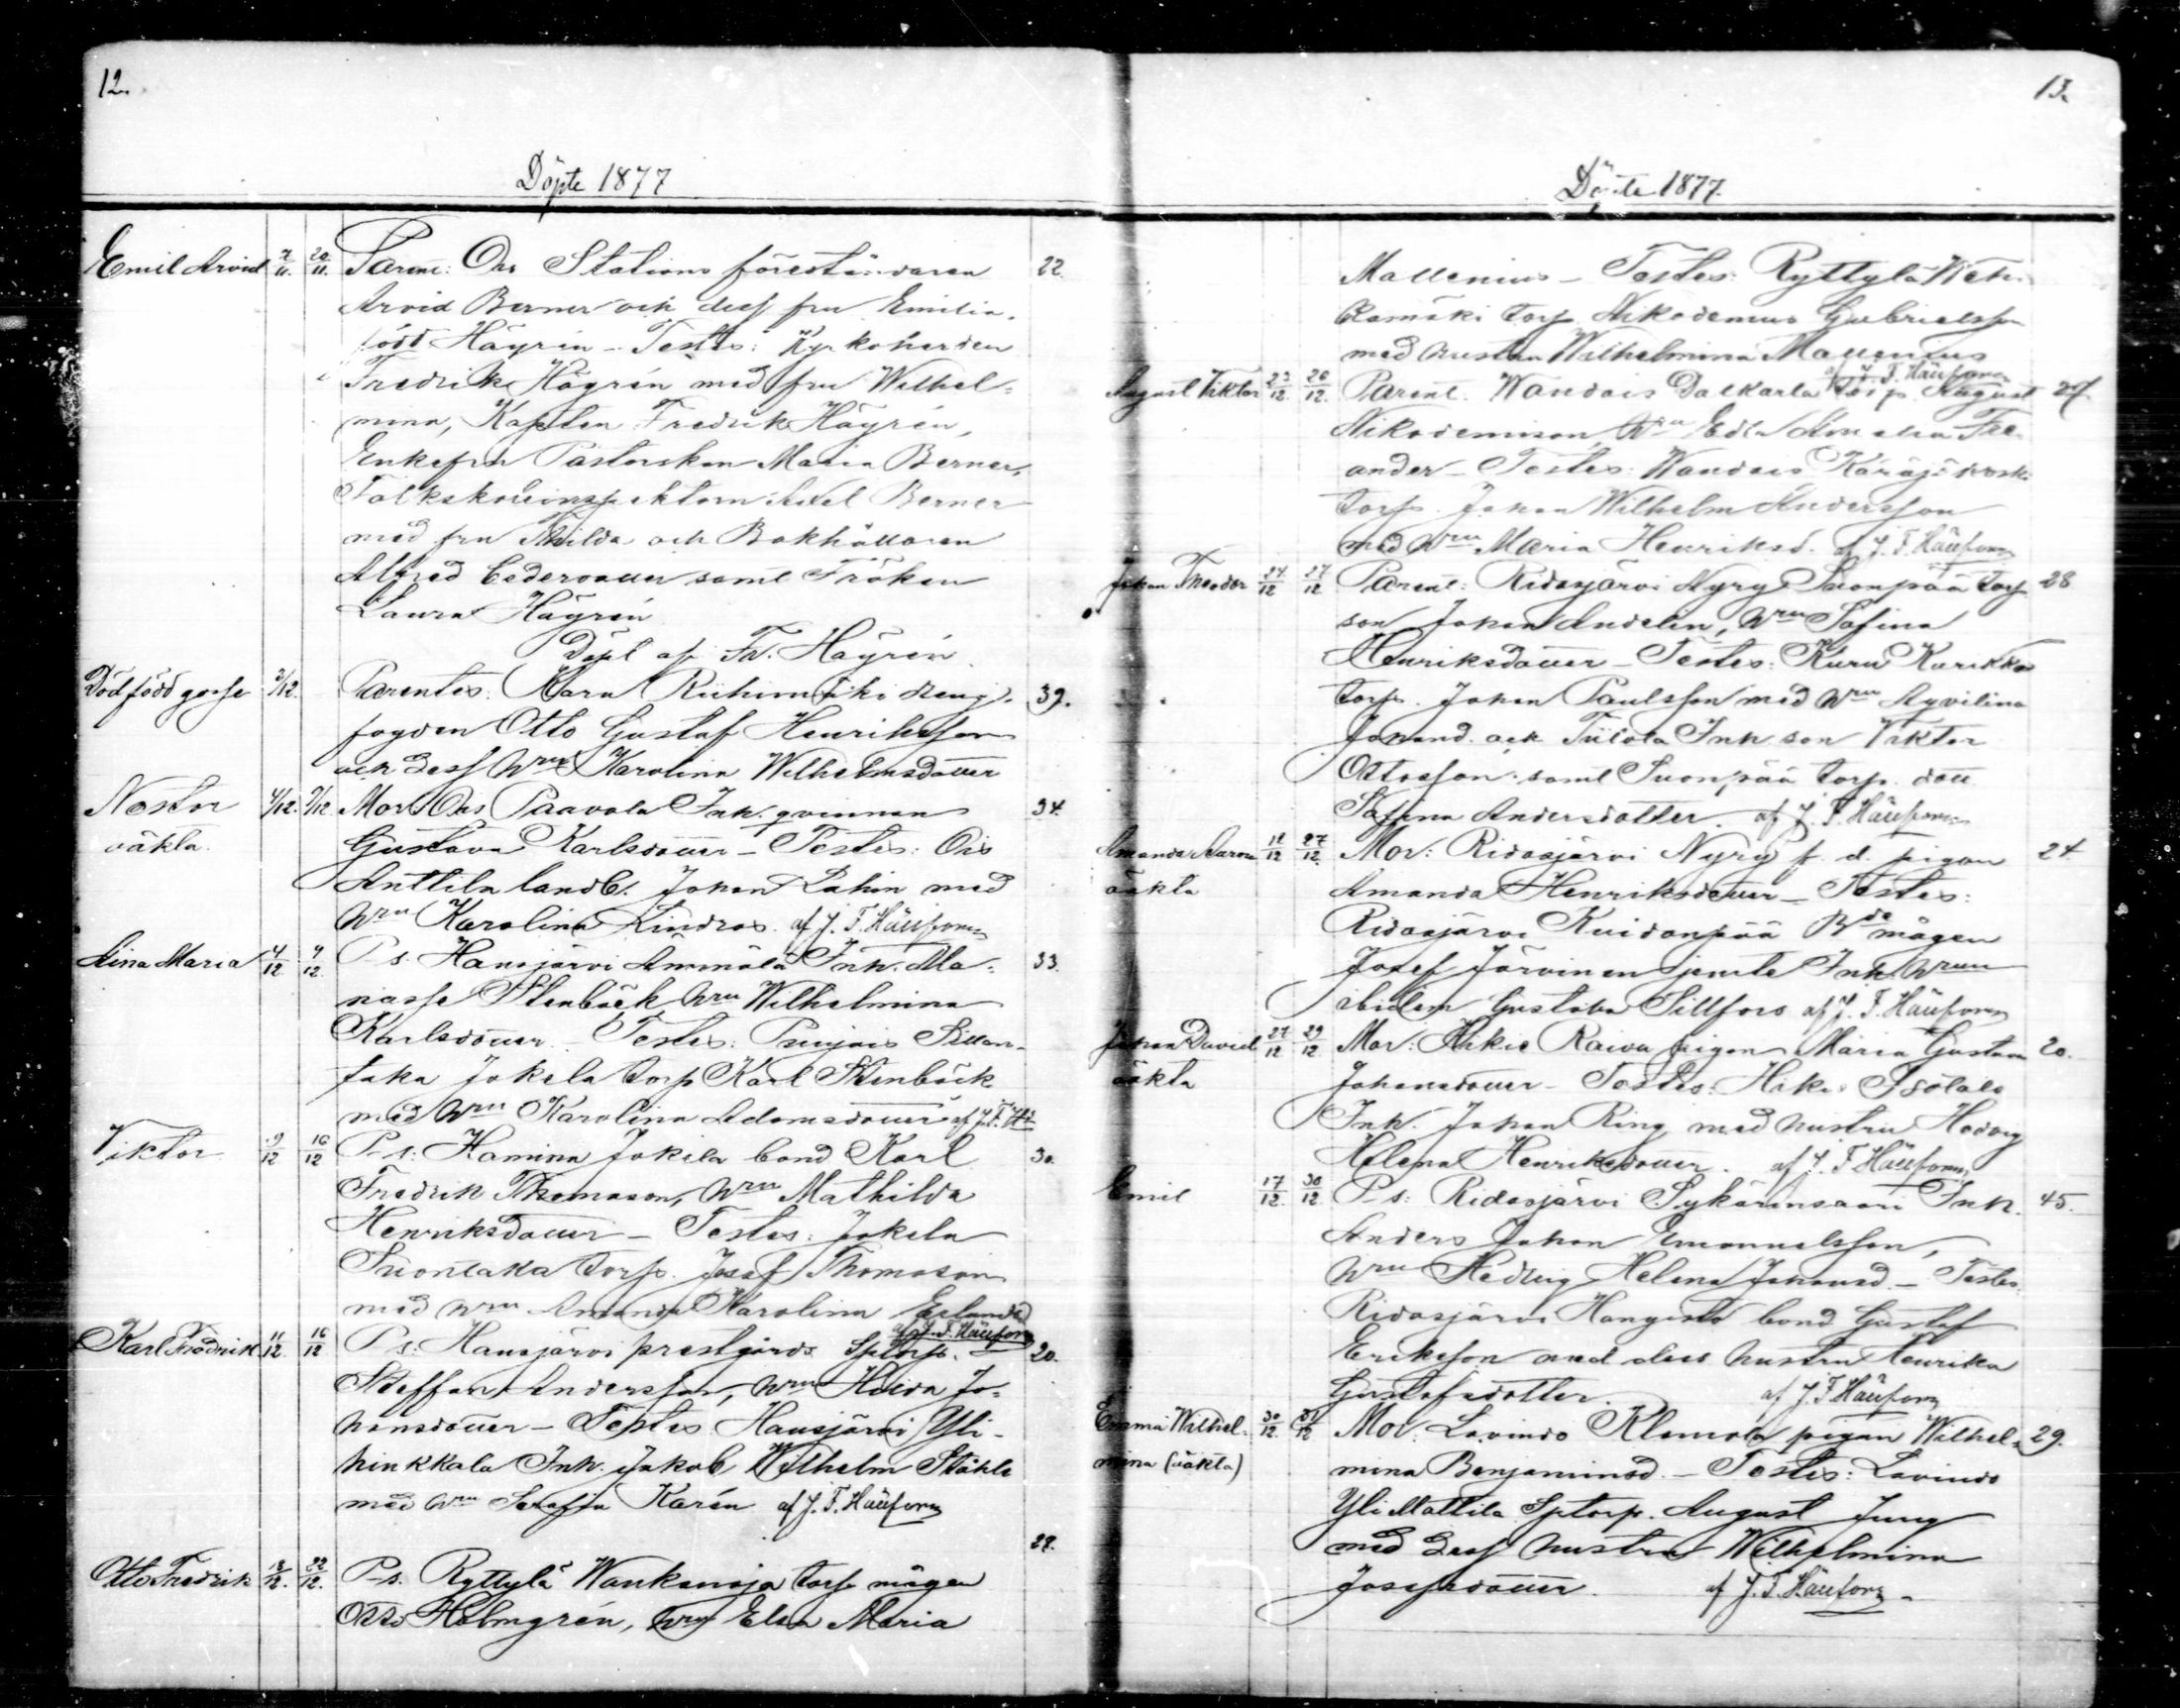 12.
Döpte 1877
Emil Arvid 7/11. 20/11. Parent: Ois Stations föreståndaren 22.
Arvid Berner och dess fru Emilia,
född Häyrén – Testes: Kyrkoherden
Fredrik Häyrén med fru Wilhel-
mina, Kapten Fredrik Häyrén,
Enkefru Pastorskan Maria Berner,
Folkskoleinspektorn Axel Berner
med fru Thilda och Bokhållaren
Alfred Cedervaller samt Fröken
Laura Häyrén
Döpt af Fr. Häyrén
Dödfödd gosse 2/12. Parentes: Kara Riihimäki 39.
fogden Otto Gustaf Henriksson
och dess hru Karolina Wilhelmsdotter
Nestor 4/12. 9/12. Mor: Ois Paavola Inh. qvinnan 34.
oäkta. Gustava Karlsdotter – Testes: Ois
Anttila landb. Johan Lahin med
hru Karolina Lindros. af J. F. Häufom
Aina Maria 4/12 9/12. P-s. Hausjärvi Ämmälä Inh. Ma- 33.
nasse Stenbäck hru Wilhelmina
Karlsdotter – Testes: Puujois
Jokela torp Karl Stenbäck
med hru Karolina Adamsdotter af J. F. Hä
Viktor 9/12 16/12 P-s: Hamina Jokela bond Karl 30.
Fredrik Thomason, hru Mathilda
Henriksdotter – Testes: Jokela
Suontaka torp. Josef Thomason
med hru Amanda Karolina Erlund
af J. F. Häufom
Karl Fredrik 11/12. 16/12 P-s: Hausjärvi prestgårds Sptorp. 20.
Staffan Andersson, hru Hilda Jo-
hansdotter – Testes Hausjärvi Yli-
hinkkala Inh. Jakob Wilhelm Ståhle
med hru Serafia Karén af J. F. Häufom
Otto Fredrik 18/12. 22/12. P-s. Ryttylä Wankanoja torp mågen 28.
Otto Holmgrén, hru Elsa Maria
13.
Döpte 1877.
Mallenius – Testes: Ryttylä
torp. Nikodemus Gabrielsson
med hustru Wilhelmina Mallenius
af J. F. Häufom
August Viktor 23/12. 26/12. Parent. Wandais Dalkarla torp. August 27.
Nikodemison, hru Edla Amalia
ander – Testes: Wandais
torp. Johan Wilhelm Andersson
med hru Maria Henriksd. af J. F. Häufom
Johan Theodor 24/12 27/12 Parent: Ridasjärvi Nyry Suonpää torp 28
son Johan Andelin, hru Sofina
Henriksdotter – Testes: Kuru Kurikka
torp. Johan Paulsson med hru Aqvilina
Johansd. och Tiilola Inh. son Viktor
Ottosson samt Suonpää torp. dott.
Safina Andersdotter. af J. F. Häufom
Amanda Aurora 18/12 27/12. Mor: Ridasjärvi Nyry f. d. pigan 24.
oäkta Amanda Henriksdotter – Testes:
Ridasjärvi Kuidanpää Bde mågen
Josef Järvinen jemte Inh. hrun
ibidem Gustava Sillfors af J. F. Häufom
Johan David 27/12 29/12 Mor: Hikiä Raiva pigan Maria Gustava 20.
oäkta Johansdotter – Testes: Hikiä Isotalo
Inh. Johan Ring med hustru Hedvig
Helena Henriksdotter. af J. F. Häufom
Emil 17/12. 30/12. P-s: Ridasjärvi Sykärinsaari Inh. 45.
Anders Johan Emanuelsson,
hru Hedvig Helena Johansd. – Testes.
Ridasjärvi Hangisto bond Gustaf
Eriksson med dess hustru Henrika
Gustafsdotter. af J. F. Häufom
Emma Wilhel- 30/12. 31/12 Mor: Lavinto Klemola pigan Wilhel- 29.
mina (oäkta) mina Benjaminsd. – Testes: Lavinto
Yli Mattila Sptorp. August Jung
med dess hustru Wilhelmina
Josefsdotter. af J. F. Häufom